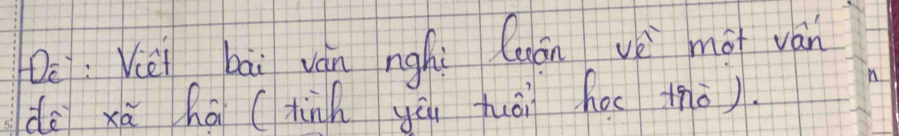 Đề: Viết bài văn nghị luận về một vấn
đề xã hội (tình yêu tuổi học trò).